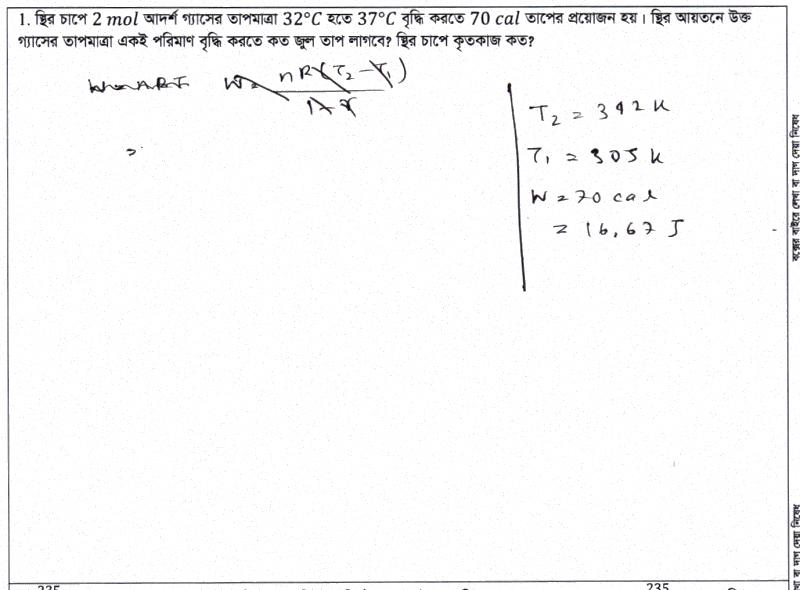 1. স্থির চাপে 2 mol আদর্শ গ্যাসের তাপমাত্রা 32°C হতে 37°C বৃদ্ধি করতে 70 cal তাপের প্রয়োজন হয়। স্থির আয়তনে উক্ত
গ্যাসের তাপমাত্রা একই পরিমাণ বৃদ্ধি করতে কত জুল তাপ লাগবে? স্থির চাপে কৃতকাজ কত?
W = nR(T₂ - T₁)
=
T₂ = 342 K
T₁ = 305 K
W = 70 cal
= 16.67 J
বক্সের বাইরে লেখা বা দাগ দেয়া নিষেধ
বা দাগ দেয়া নিষেধ
235